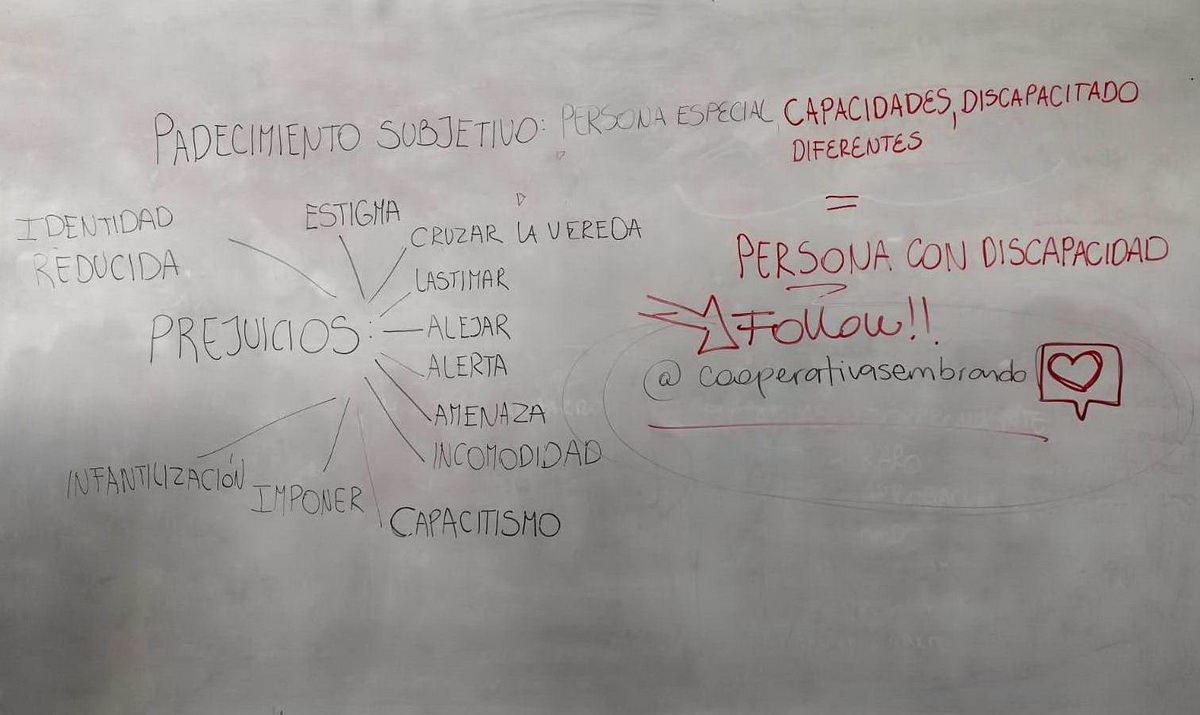 PADECIMIENTO SUBJETIVO: PERSONA ESPECIAL, CAPACIDADES, DISCAPACITADO
DIFERENTES
=
PERSONA CON DISCAPACIDAD
IDENTIDAD
REDUCIDA
ESTIGMA
CRUZAR LA VEREDA
LASTIMAR
PREJUICIOS:
ALEJAR
ALERTA
AMENAZA
INCOMODIDAD
INFANTILIZACIÓN
IMPONER
CAPACITISMO
Follow!!
@cooperativasembrando